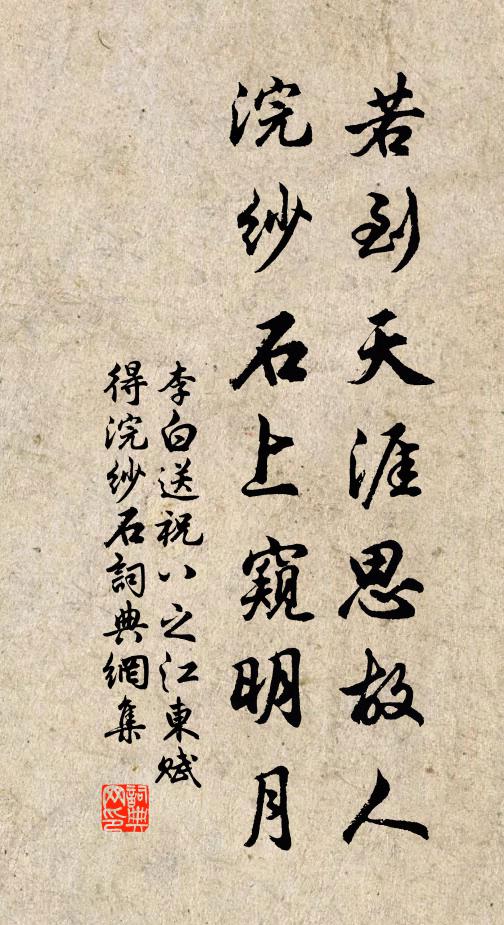 若到天涯思故人
浣紗石上窺明月
李白送祝八之江東賦
得浣紗石詞典網集
詞典
网印